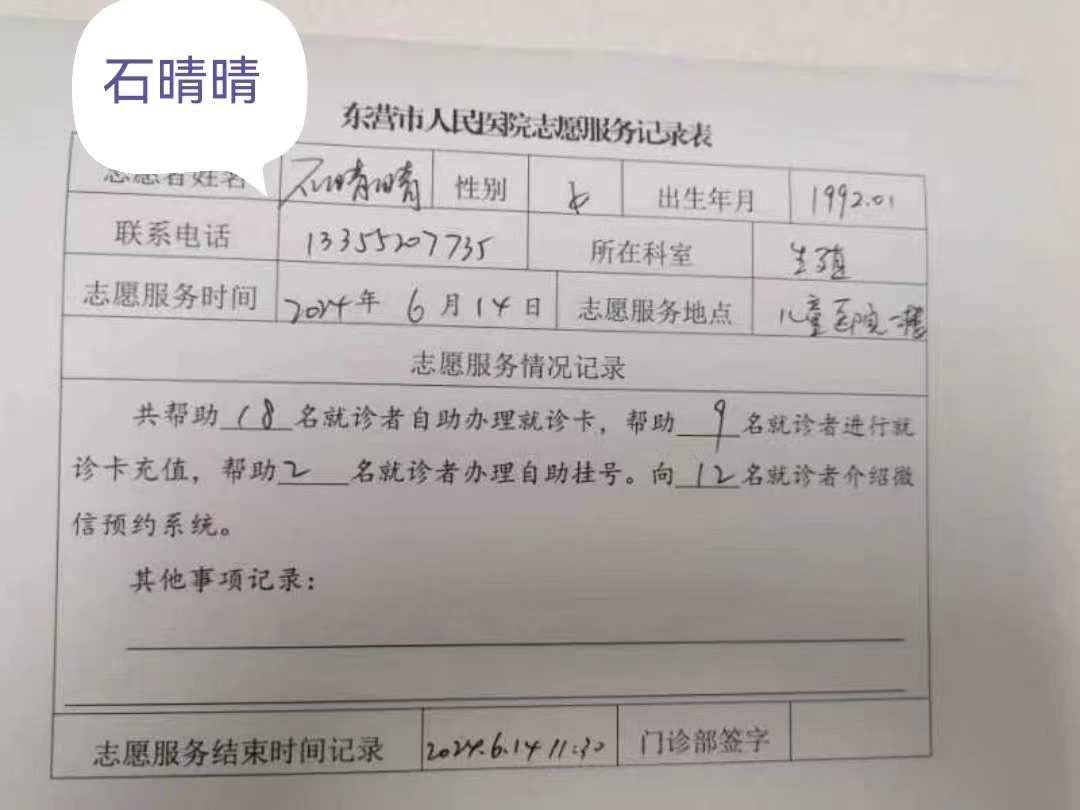 石晴晴
东营市人民医院志愿服务记录表
志愿者姓名 石晴晴 性别 女 出生年月 1992.01
联系电话 13355207735 所在科室 生殖
志愿服务时间 2024年 6月14日 志愿服务地点 儿童医院一楼
志愿服务情况记录
共帮助18名就诊者自助办理就诊卡，帮助9名就诊者进行就
诊卡充值，帮助2名就诊者办理自助挂号。向12名就诊者介绍微
信预约系统。
其他事项记录：
志愿服务结束时间记录 2024.6.14 11:30 门诊部签字